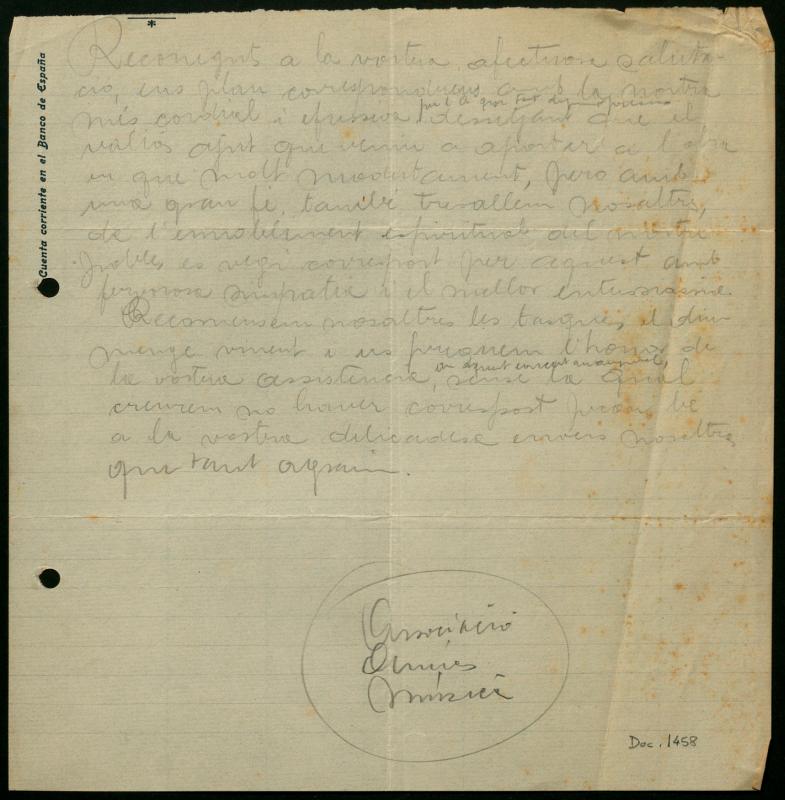 *
Cuenta corriente en el Banco de España
Reconeguts a la vostra afectuosa saluta-
ció, ens plau correspondreus amb la nostra
més cordial i efussiva
desitjant que el
valiós ajut que veniu a aportar a l'obra
en que molt modestament, pero amb
una gran fé, també treballem nosaltres,
de l'ennobliment espiritual del nostre
poble, es vegi correspost per aquest amb
fervorosa simpatia i el mellor entussiasme.
Recomensem nosaltres les tasques, el diu-
menge vinent i us preguem l'honor de
la vostra assistència, sense la qual
creurem no haver correspost prou be
a la vostra delicadesa envers nosaltres
que tant agraim.
Associació
Amics
Música
Doc. 1458